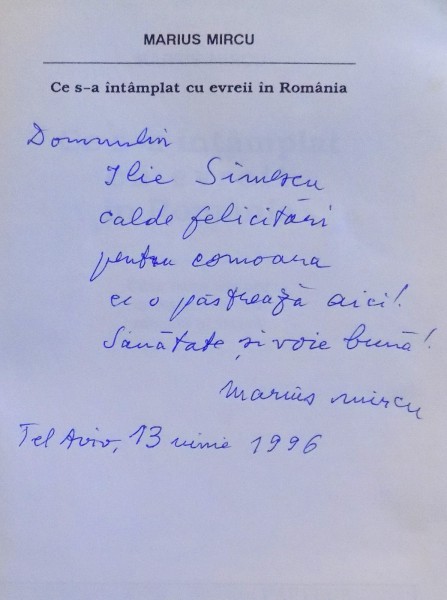 MARIUS MIRCU
Ce s-a întâmplat cu evreii în România
Domnului
Ilie Simescu
calde felicitări
pentru comoara
ce o păstrează aici!
Sănătate și voie bună!
Marius Mircu
Tel Aviv, 13 iunie 1996